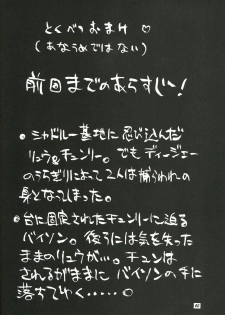 とくべつおまけ♡
(あなうめではない)
前回までのあらすじ〜!
●シャドルー基地に忍び込んだ
リュウ&チュンリー。でもディージェー
のうらぎりによって2人は捕らわれの
身となってしまった。
●台に固定されたチュンリーに迫る
バイソン。後ろには気を失った
ままのリュウが…。チュンは
されるがままに バイソンの手に
落ちてゆく……♡